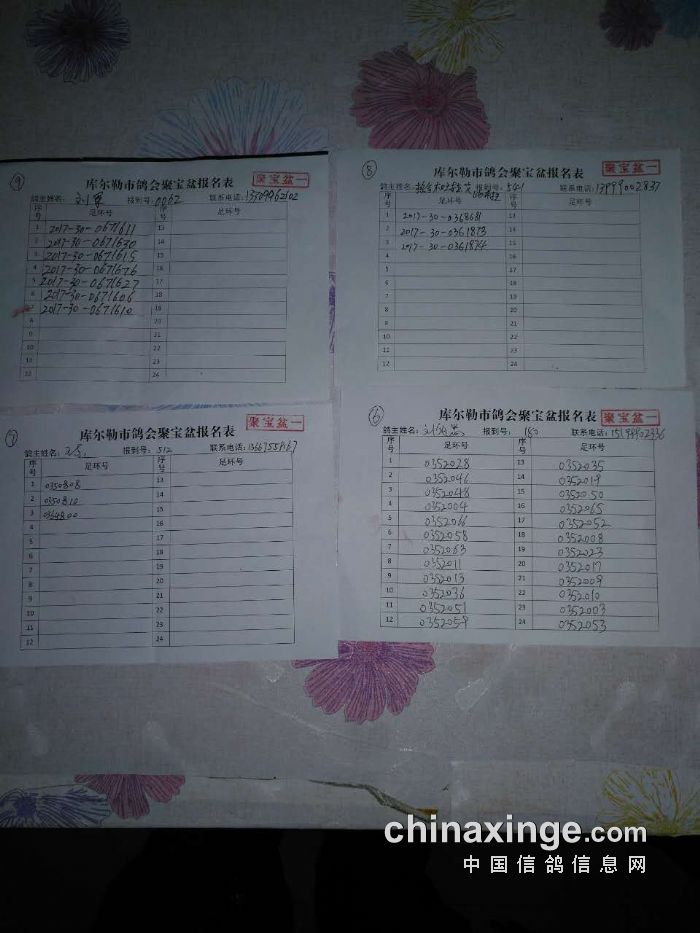 ⑨
聚宝盆一
库尔勒市鸽会聚宝盆报名表
鸽主姓名: 刘军 报到号: 0062 联系电话: 13709962102
序号 足环号 序号 足环号
1 2017-30-0671611 13
2 2017-30-0671630 14
3 2017-30-0671615 15
4 2017-30-0671676 16
5 2017-30-0671627 17
6 2017-30-0671606 18
7 2017-30-0671610 19
8 20
9 21
10 22
11 23
12 24
⑧
聚宝盆一
库尔勒市鸽会聚宝盆报名表
鸽主姓名: 报到号: 541 联系电话: 13999002837
序号 足环号 序号 足环号
1 2017-30-0368681 13
2 2017-30-0361873 14
3 2017-30-0361874 15
4 16
5 17
6 18
7 19
8 20
9 21
10 22
11 23
12 24
⑦
聚宝盆一
库尔勒市鸽会聚宝盆报名表
鸽主姓名: 报到号: 512 联系电话:
序号 足环号 序号 足环号
1 0350808 13
2 0350810 14
3 0364800 15
4 16
5 17
6 18
7 19
8 20
9 21
10 22
11 23
12 24
⑥
聚宝盆一
库尔勒市鸽会聚宝盆报名表
鸽主姓名: 报到号: 联系电话: 15199902336
序号 足环号 序号 足环号
1 0352028 13 0352035
2 0352046 14 0352019
3 0352048 15 0352050
4 0352004 16 0352065
5 0352066 17 0352052
6 0352058 18 0352008
7 0352063 19 0352023
8 0352011 20 0352017
9 0352013 21 0352009
10 0352036 22 0352010
11 0352051 23 0352003
12 0352059 24 0352053
chinaxinge.com
中国信鸽信息网